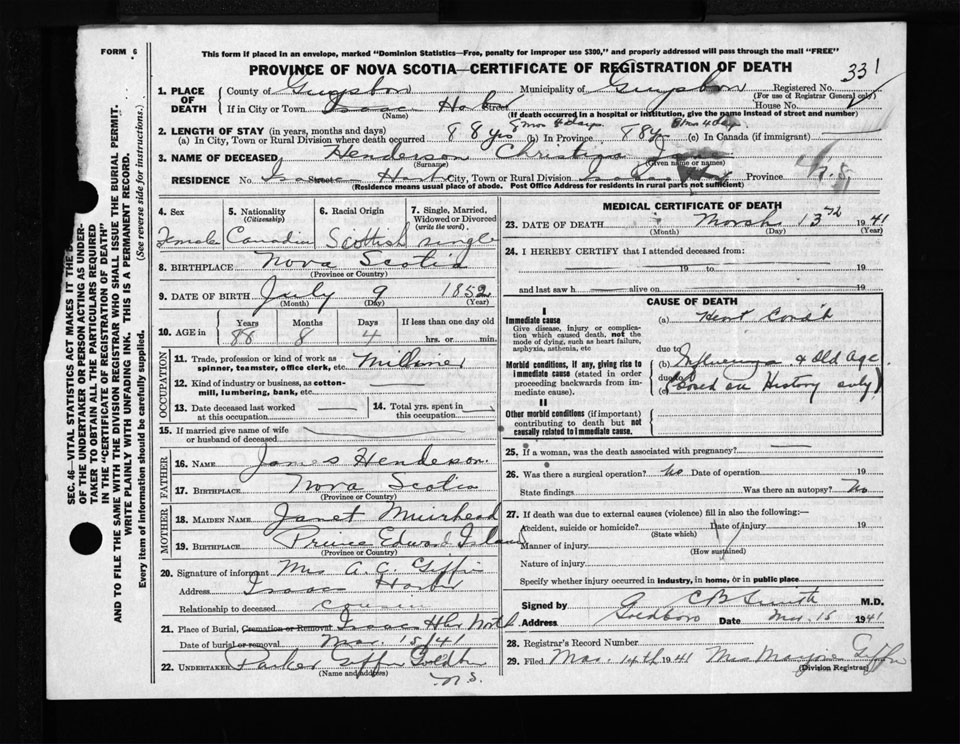 FORM 6
This form if placed in an envelope, marked "Dominion Statistics—Free, penalty for improper use $300," and properly addressed will pass through the mail "FREE"
PROVINCE OF NOVA SCOTIA—CERTIFICATE OF REGISTRATION OF DEATH
331
1. PLACE OF DEATH
County of Guysboro Municipality of Guysboro Registered No.
(For use of Registrar General only)
If in City or Town Isaac Harbor Street House No.
(Name) (If death occurred in a hospital or institution, give the name instead of street and number)
2. LENGTH OF STAY (in years, months and days) 8 mos 4 days 8 mos 4 days
(a) In City, Town or Rural Division where death occurred 88 yrs (b) In Province 88 yrs (c) In Canada (if immigrant)
3. NAME OF DECEASED Henderson Christina J
(Surname) (Given name or names)
RESIDENCE No. Isaacs Street Harbor City, Town or Rural Division Province N.S.
(Residence means usual place of abode. Post Office Address for residents in rural parts not sufficient)
4. Sex
5. Nationality (Citizenship)
6. Racial Origin
7. Single, Married, Widowed or Divorced (write the word)
Female Canadian Scottish single
8. BIRTHPLACE Nova Scotia
(Province or Country)
9. DATE OF BIRTH July 9 1852
(Month) (Day) (Year)
10. AGE in Years Months Days If less than one day old
88 8 4 hrs. or min.
11. Trade, profession or kind of work as spinner, teamster, office clerk, etc. Milliner
12. Kind of industry or business, as cotton-mill, lumbering, bank, etc.
13. Date deceased last worked at this occupation
14. Total yrs. spent in this occupation
15. If married give name of wife or husband of deceased
FATHER
16. NAME James Henderson.
17. BIRTHPLACE Nova Scotia
(Province or Country)
MOTHER
18. MAIDEN NAME Janet Muirhead
19. BIRTHPLACE Prince Edward Island
(Province or Country)
20. Signature of informant Mrs A. C. Giffin
Address Isaac Harbor
Relationship to deceased cousin
21. Place of Burial, Cremation or Removal Isaac Hbr North
Date of burial or removal Mar. 15/41
22. UNDERTAKER Parker Giffin Goldboro
(Name and address)
N.S.
MEDICAL CERTIFICATE OF DEATH
23. DATE OF DEATH March 13 1941
(Month) (Day) (Year)
24. I HEREBY CERTIFY that I attended deceased from:
19 to 19
and last saw h alive on 19
CAUSE OF DEATH
I
Immediate cause
Give disease, injury or complication which caused death, not the mode of dying, such as heart failure, asphyxia, asthenia, etc
(a) Heart
due to
Morbid conditions, if any, giving rise to immediate cause (stated in order proceeding backwards from immediate cause).
(b) Influenza & Old Age
due to
(c) (Based on History only)
II
Other morbid conditions (if important) contributing to death but not causally related to immediate cause.
25. If a woman, was the death associated with pregnancy?
26. Was there a surgical operation? No Date of operation 19
State findings Was there an autopsy? No
27. If death was due to external causes (violence) fill in also the following:—
Accident, suicide or homicide? Date of injury 19
(State which)
Manner of injury
(How sustained)
Nature of injury
Specify whether injury occurred in industry, in home, or in public place
Signed by C B Smith M.D.
Address Goldboro Date Mar 15 1941
28. Registrar's Record Number
29. Filed Mar. 14th 1941 Mrs Marjorie Giffin
(Division Registrar)
SEC. 46—VITAL STATISTICS ACT MAKES IT THE
OF THE UNDERTAKER OR PERSON ACTING AS UNDERTAKER TO OBTAIN ALL THE PARTICULARS REQUIRED
IN THE "CERTIFICATE OF REGISTRATION OF DEATH"
AND TO FILE THE SAME WITH THE DIVISION REGISTRAR WHO SHALL ISSUE THE BURIAL PERMIT.
WRITE PLAINLY WITH UNFADING INK. THIS IS A PERMANENT RECORD.
Every item of information should be carefully supplied. (See reverse side for instructions.)